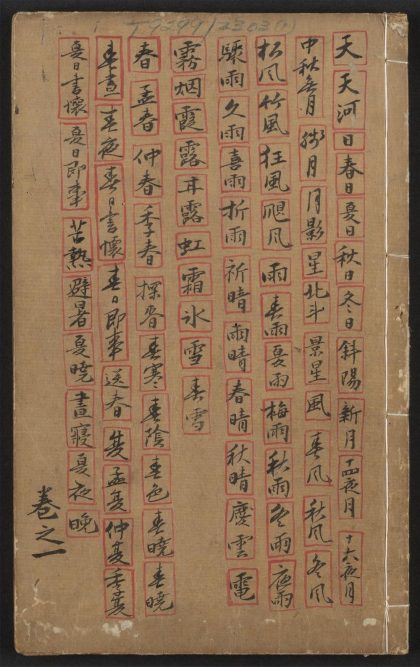 T9299/2303(1)
天 天河 日 春日 夏日 秋日 冬日 斜陽 新月 十四夜月 十六夜月
中秋無月 月 月影 星 北斗 景星 風 春風 秋風 冬風
松風 竹風 狂風 颶風 雨 春雨 夏雨 梅雨 秋雨 冬雨 夜雨
驟雨 久雨 喜雨 祈雨 祈晴 雨晴 春晴 秋晴 慶雲 電
霧 烟 霞 露 甘露 虹 霜 氷 雪 春雪
春 孟春 仲春 季春 探春 春寒 春陰 春色 春曉 春曉
春晝 春夜 春日書懷 春日即事 送春 夏 孟夏 仲夏 季夏
夏日書懷 夏日即事 苦熱 避暑 夏曉 晝寢 夏夜 晚
卷之一